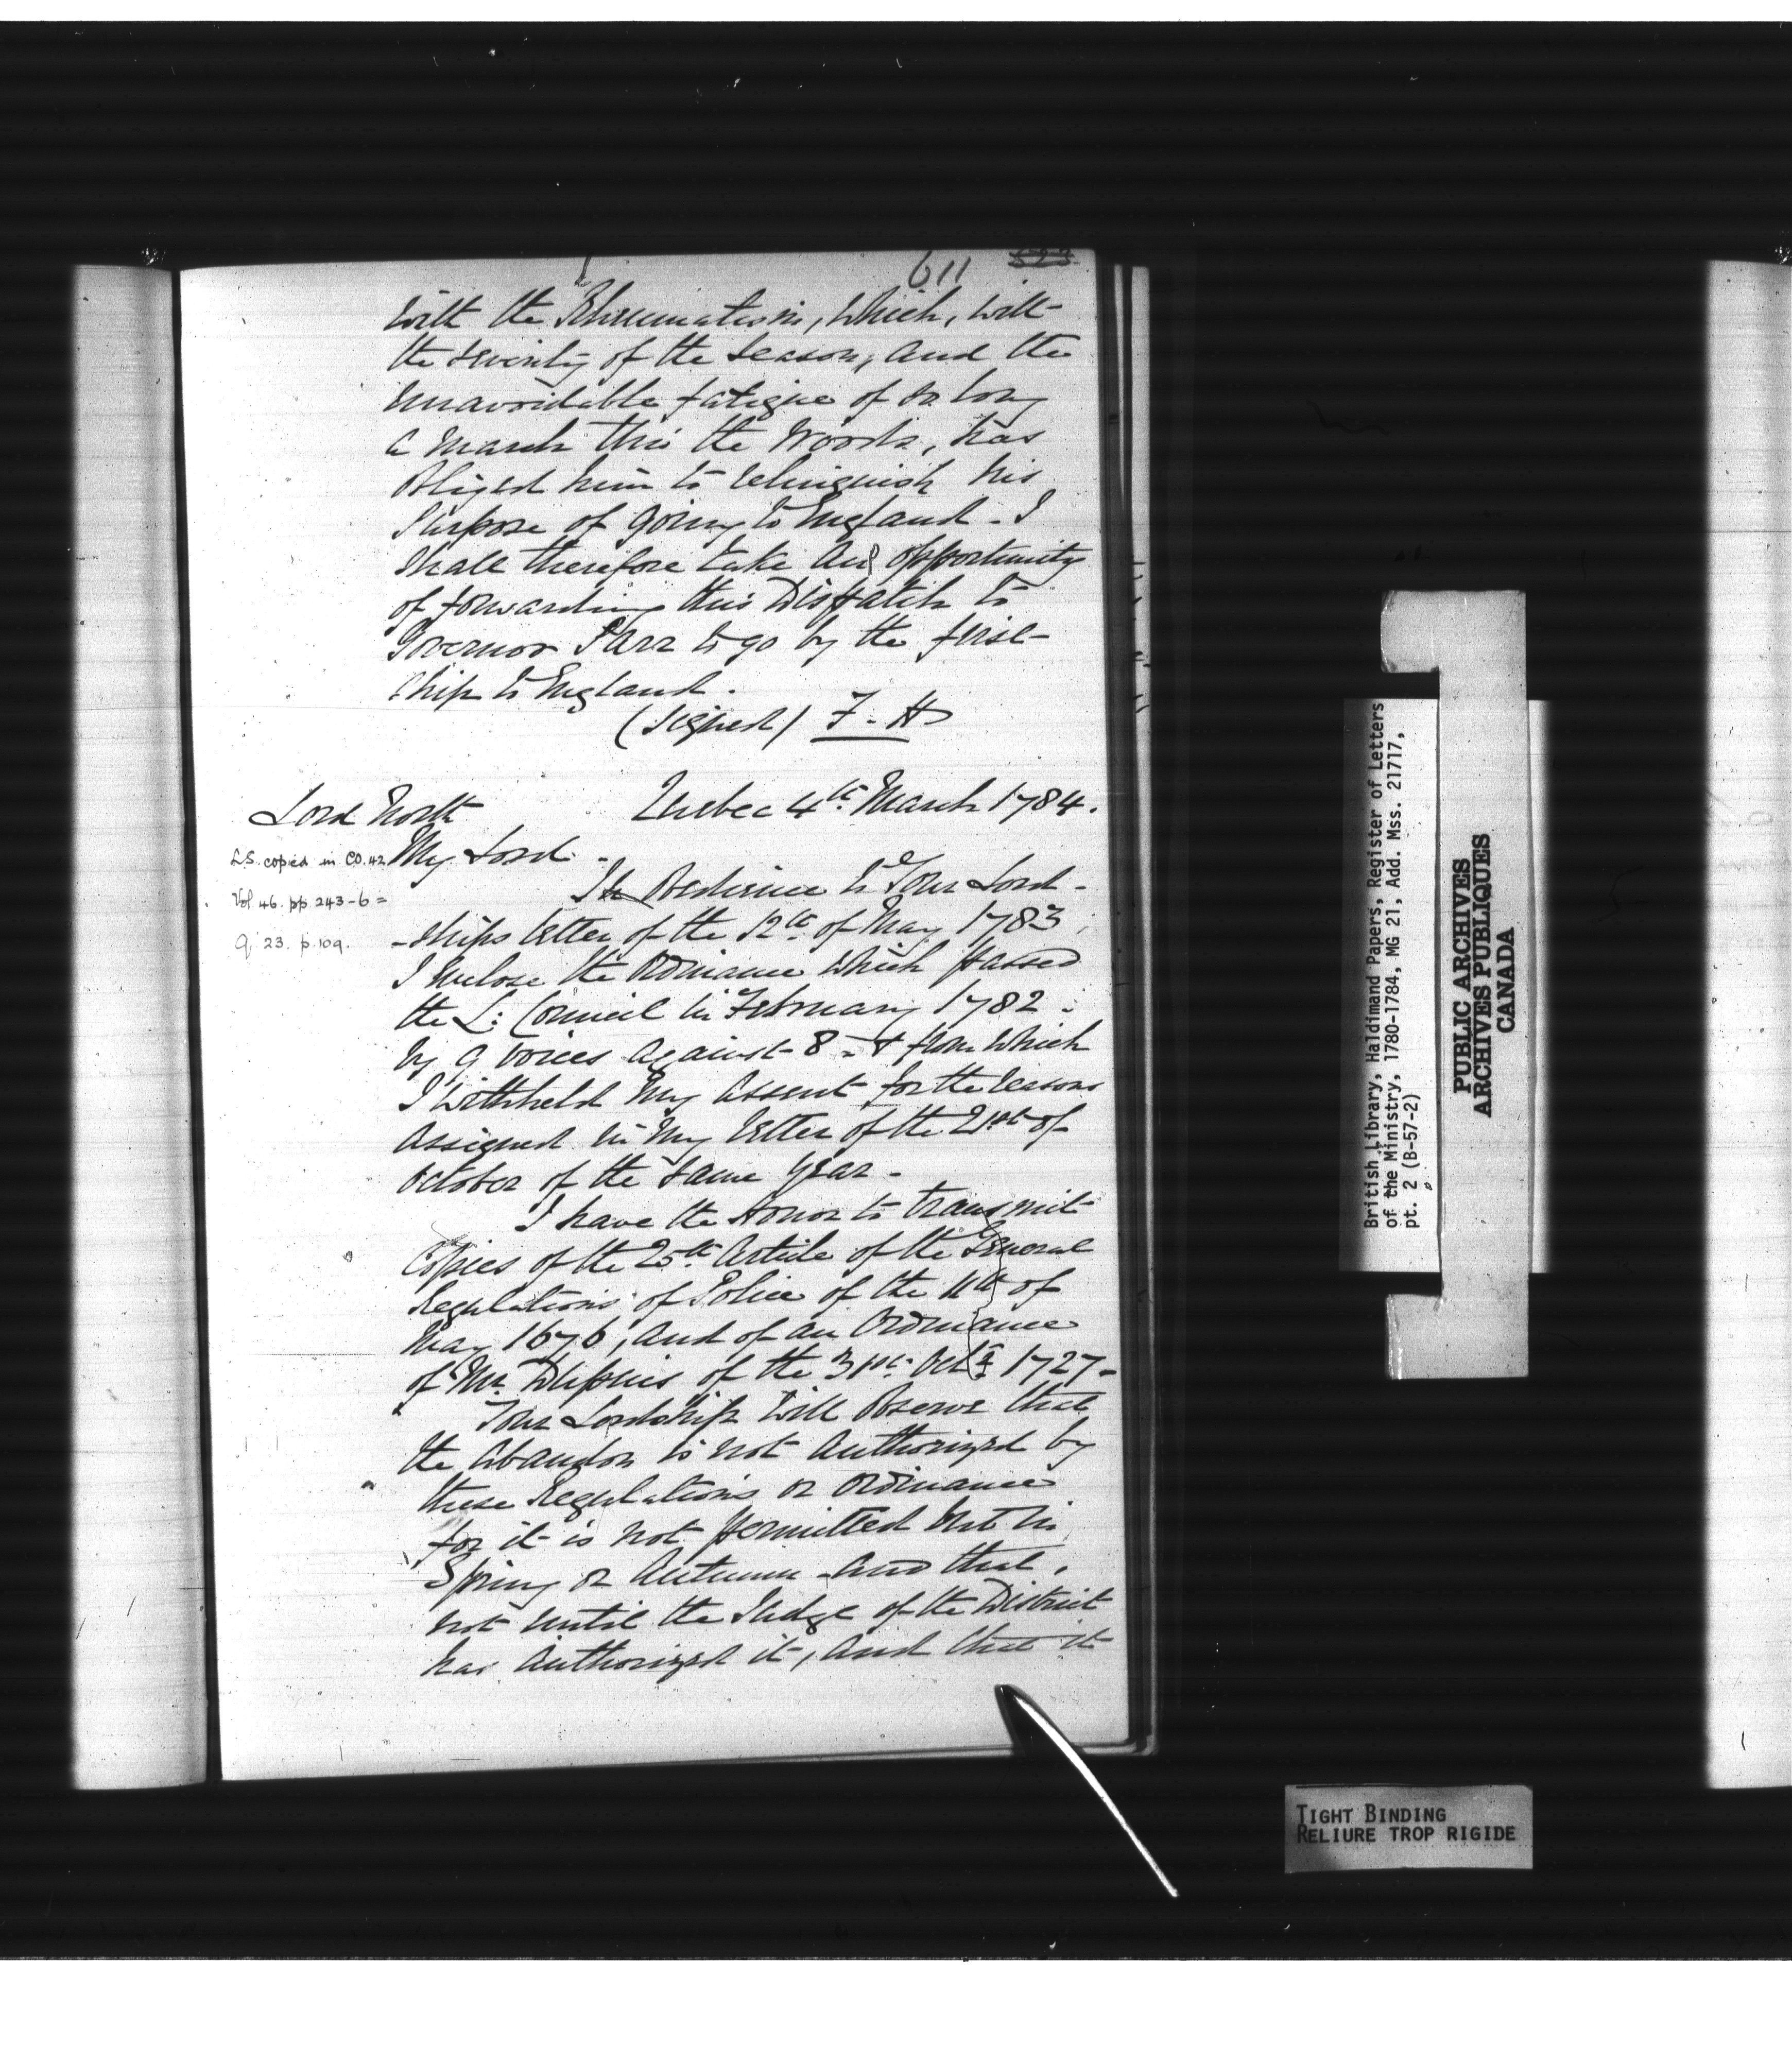 611 523
with the Rheumatism, which, with
the severity of the Season, and the
unavoidable fatigue of so long
a march thro the Woods, has
obliged him to relinquish his
purpose of going to England. I
shall therefore take an opportunity
of forwarding this Dispatch to
Governor Parr to go by the first
ship to England.
(signed) F. H
Lord North
Quebec 4th March 1784.
L.S. copied in CO. 42
Vol 46. pp. 243-6 =
Q 23. p. 109.
My Lord.
In Obedience to Your Lord-
-ships letter of the 12th of May 1783
I enclose the Ordinance which passed
the L: Council in February 1782
by 9 voices against 8 - & from which
I withheld my assent for the reasons
assigned in my letter of the 21st of
October of the same year -
I have the Honor to transmit
Copies of the 25th Article of the General
Regulations of Police of the 11th of
May 1676, and of an Ordinance
of Mr. Dupuis of the 31st Octr 1727-
Your Lordship will observe that
the abandon is not authorized by
these Regulations or Ordinance
for it is not permitted but in
Spring or Autumn and that,
not until the Judge of the District
has authorized it, and that it
British Library, Haldimand Papers, Register of Letters
of the Ministry, 1780-1784, MG 21, Add. Mss. 21717,
pt. 2 (B-57-2)
PUBLIC ARCHIVES
ARCHIVES PUBLIQUES
CANADA
TIGHT BINDING
RELIURE TROP RIGIDE